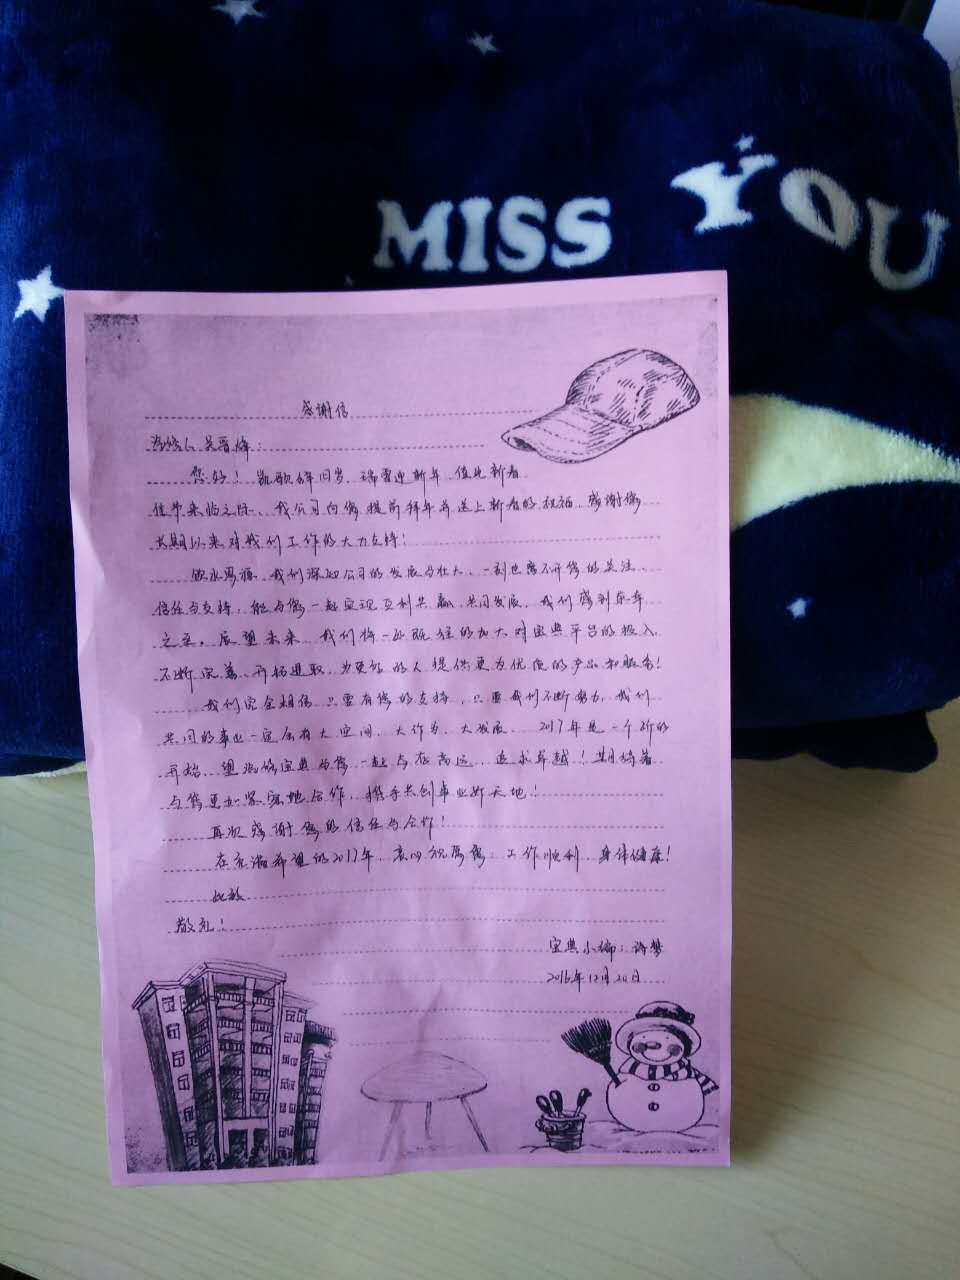 MISS YOU
感谢信
汽修人吴晋峰：
您好！凯歌辞旧岁，瑞雪迎新年，值此新春
佳节来临之际，我公司向您提前拜年并送上新春的祝福，感谢您
长期以来对我们工作的大力支持！
饮水思源，我们深知公司的发展与壮大，一刻也离不开您的关注、
信任与支持，能与您一起实现互利共赢、共同发展，我们感到荣幸
之至。展望未来，我们将一如既往的加大对宝典平台的投入，
不断完善、开拓进取，为更好的人提供更为优质的产品和服务！
我们完全相信，只要有您的支持，只要我们不断努力，我们
共同的事业一定会有大空间、大作为、大发展。2017年是一个新的
开始，望汽修宝典与您一起志在高远，追求卓越！期待着
与您更加紧密地合作，携手共创事业新天地！
再次感谢您的信任与合作！
在充满希望的2017年，衷心祝愿您：工作顺利，身体健康！
此致
敬礼！
宝典小编：诗梦
2016年12月20日